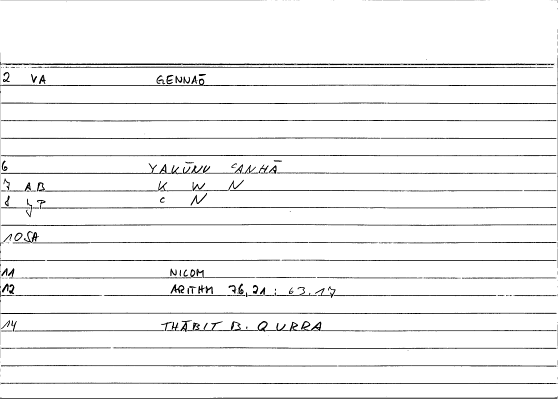 2 VA GENNAŌ
6 YAKŪNU ʿANHĀ
7 AB K W N
8 JP ʿ N
10SA
11 NICOM
12 ARITHM 76,21 : 63.17
14 THĀBIT B. QURRA